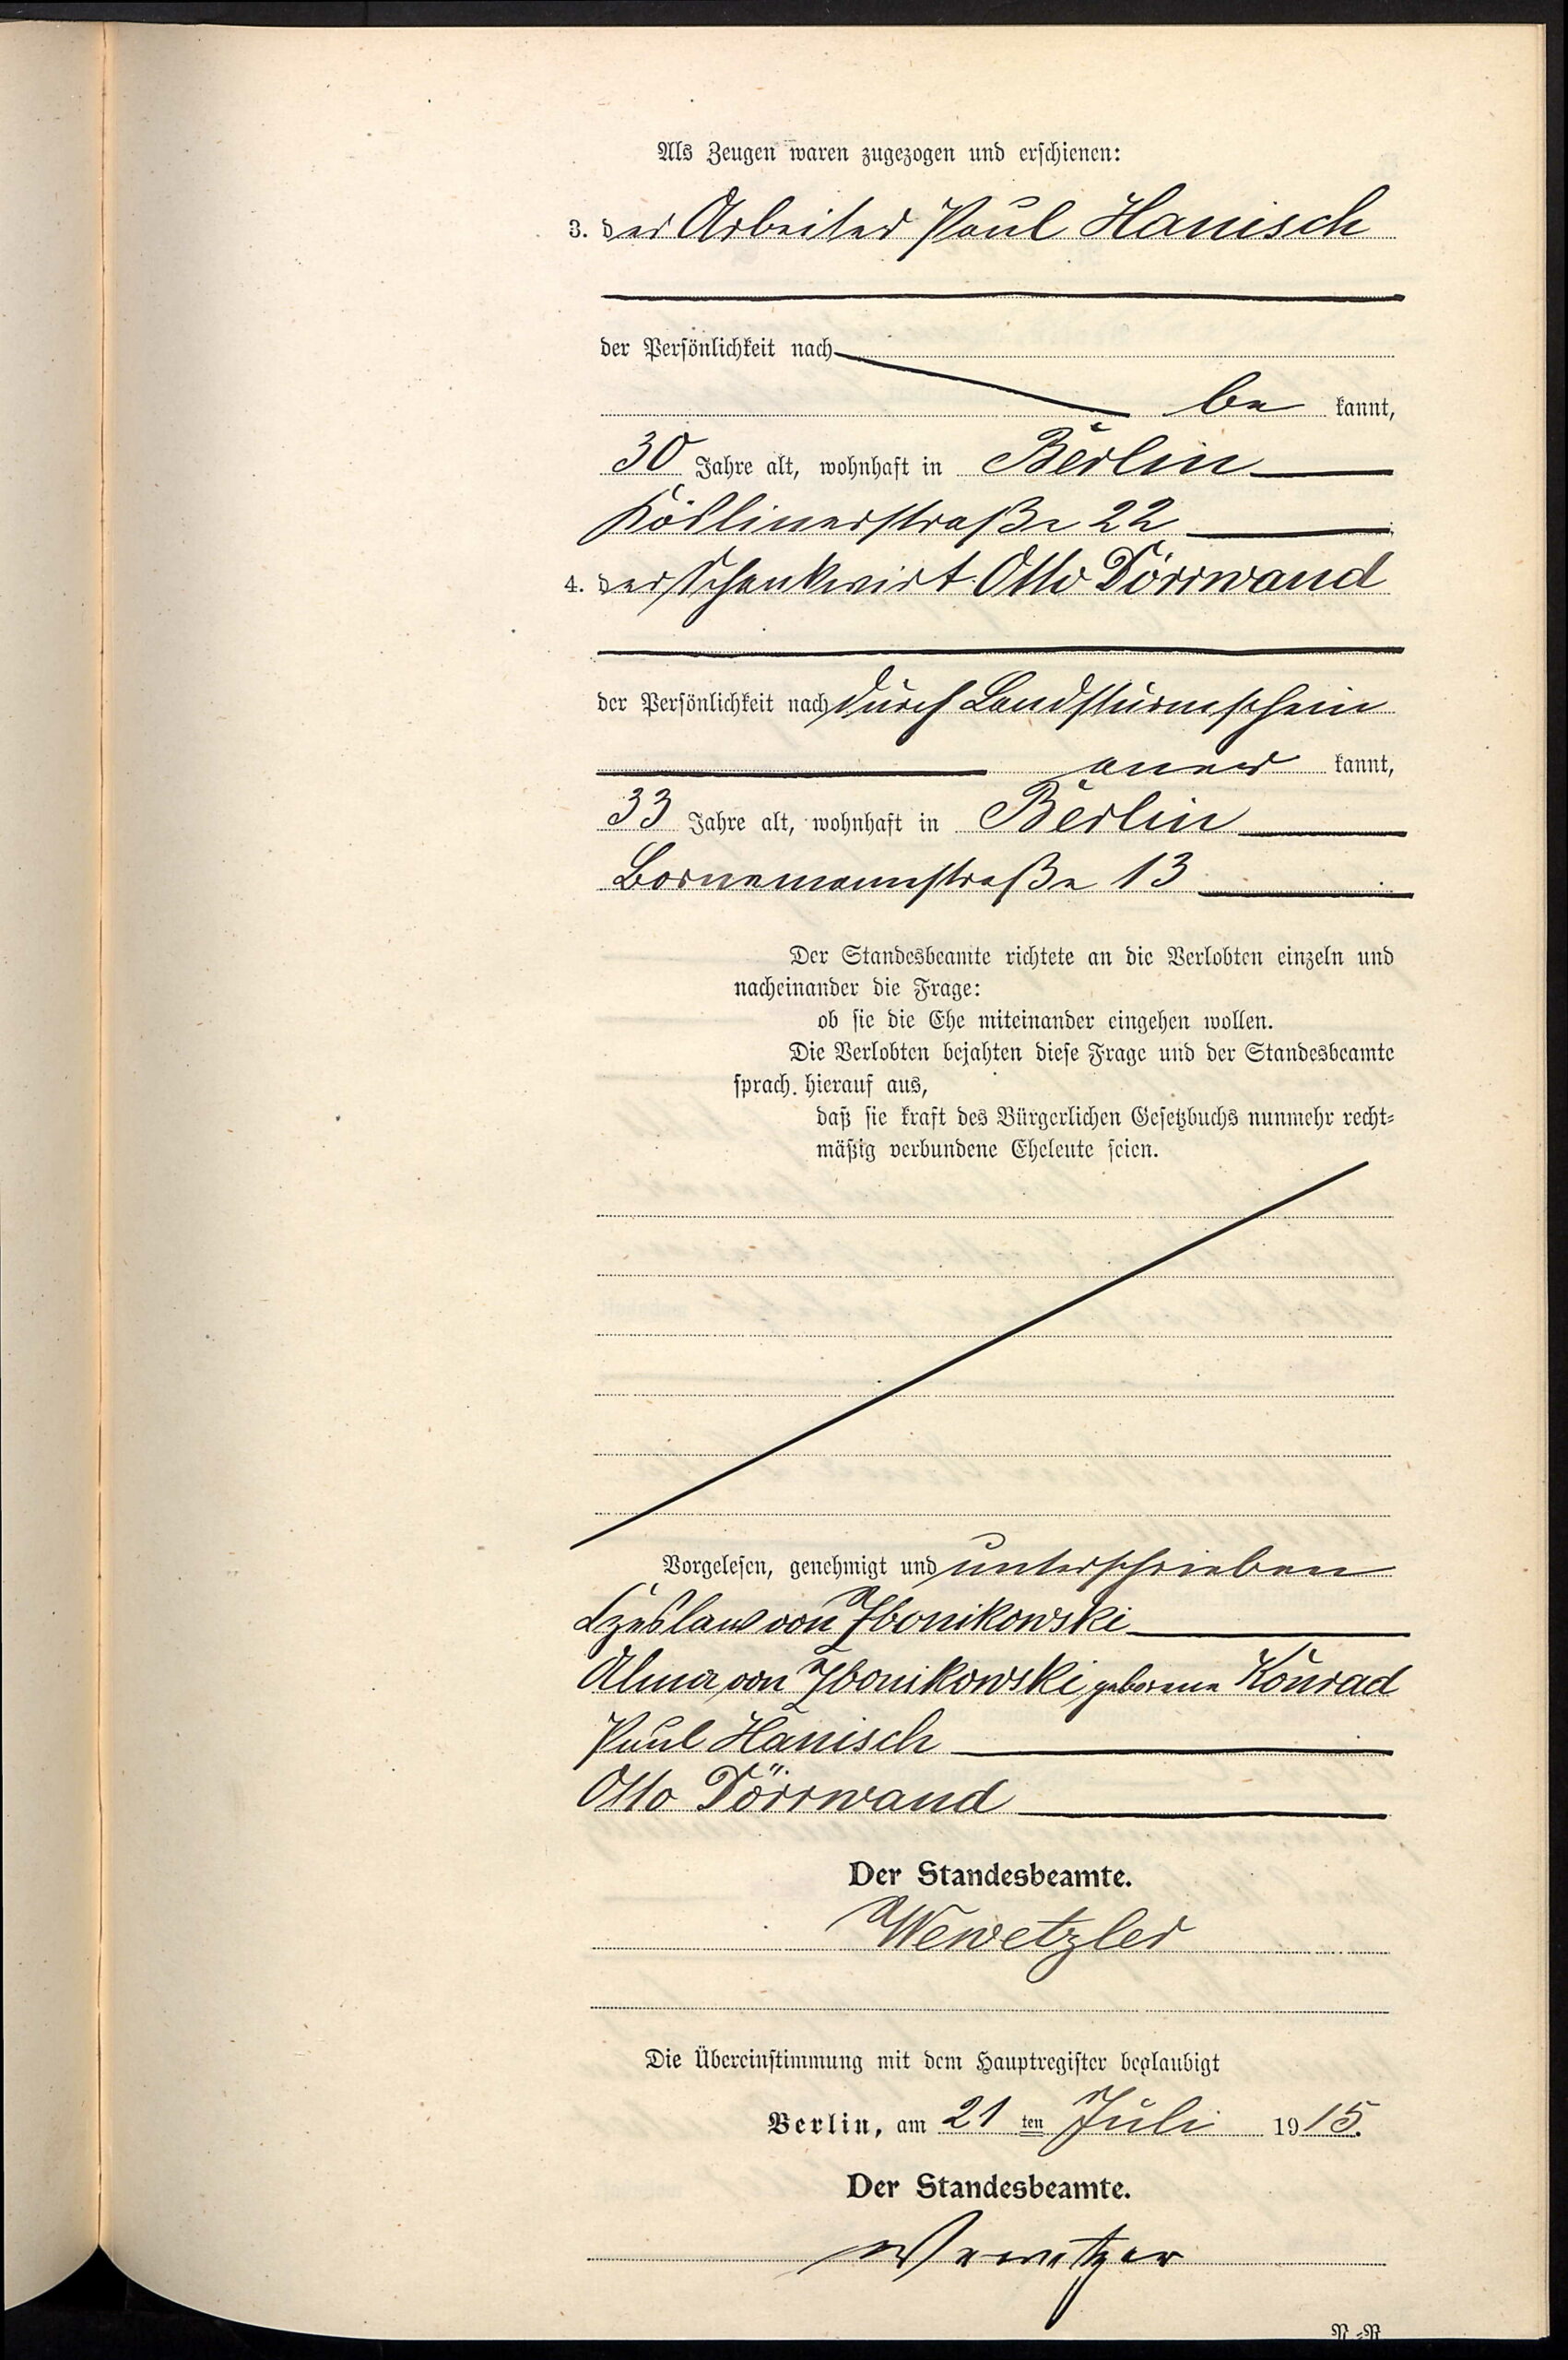 Als Zeugen waren zugezogen und erschienen:
3. der Arbeiter Paul Hanisch
der Persönlichkeit nach
be kannt,
30 Jahre alt, wohnhaft in Berlin
Köslinerstraße 22
4. der Schankwirt Otto Dörrwand
der Persönlichkeit nach durch Landsturmschein
aner kannt,
33 Jahre alt, wohnhaft in Berlin
Bornemannstraße 13
Der Standesbeamte richtete an die Verlobten einzeln und
nacheinander die Frage:
ob sie die Ehe miteinander eingehen wollen.
Die Verlobten bejahten diese Frage und der Standesbeamte
sprach hierauf aus,
daß sie kraft des Bürgerlichen Gesetzbuchs nunmehr recht-
mäßig verbundene Eheleute seien.
Vorgelesen, genehmigt und unterschrieben
Czeslaw von Zbonikowski
Alma von Zbonikowski geborene Konrad
Paul Hanisch
Otto Dörrwand
Der Standesbeamte.
Wewetzler
Die Übereinstimmung mit dem Hauptregister beglaubigt
Berlin, am 21 ten Juli 1915.
Der Standesbeamte.